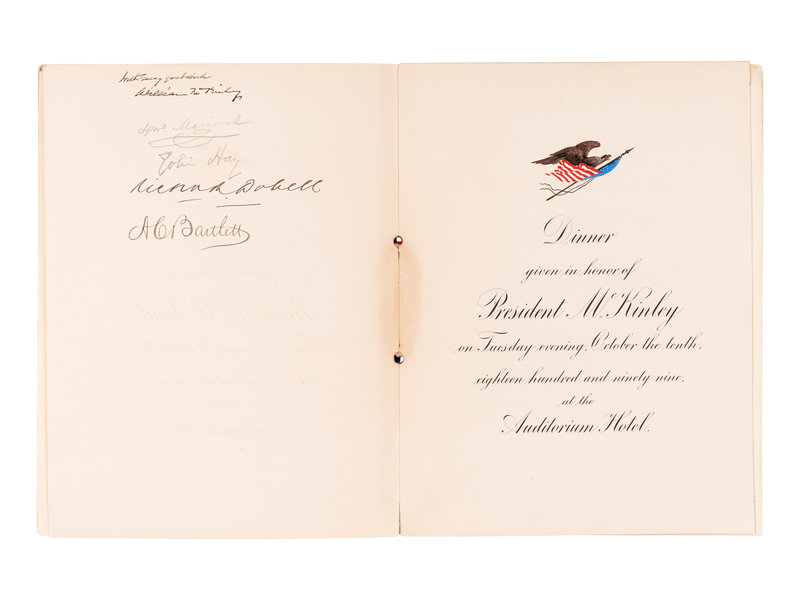 With very good wish
William McKinley
Igno. Mariscal
John Hay
Richard R. Dobell
A C Bartlett
Dinner
given in honor of
President McKinley
on Tuesday evening, October the tenth,
eighteen hundred and ninety nine,
at the
Auditorium Hotel.